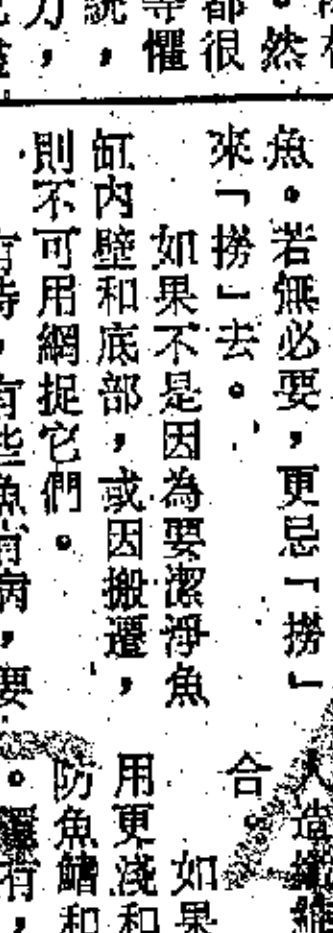 。然
都很
等懼
統，
力，
魚。若無必要，更忌「撈」
來「撈」去。
如果不是因為要潔淨魚
缸內壁和底部，或因搬遷，
則不可用網捉它們。
有時，有些魚有病，要
人造纖維
合。
如果
用更淺和
防魚鰭和
。還有，